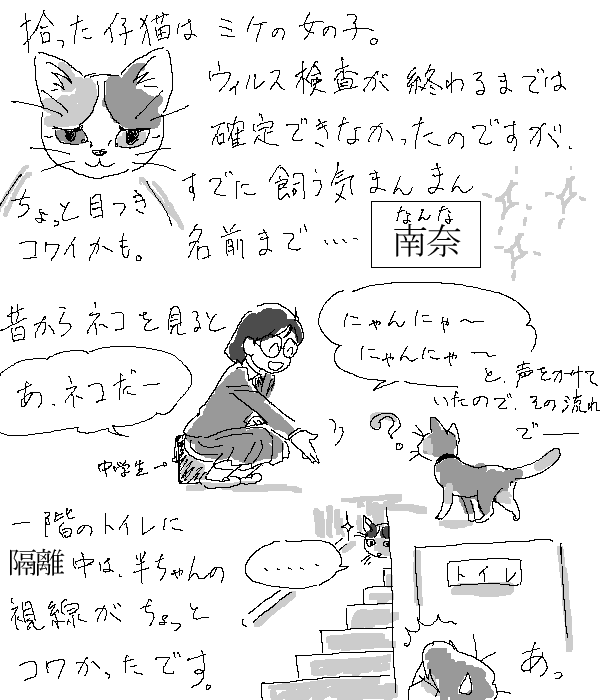 拾った仔猫は ミケの女の子。
ウィルス検査が 終わるまでは
確定できなかったのですが、
すでに 飼う気まんまん
ちょっと目つき
コワイかも。
名前まで‥‥
なんな
南奈
昔から ネコを見ると
あ、ネコだー
にゃんにゃ〜
にゃんにゃ〜
と、声をかけて
いたので、その流れ
で──
中学生→
?。
一階のトイレに
隔離中は、半ちゃんの
視線が ちょっと
コワかったです。
・・・・・
トイレ
あっ